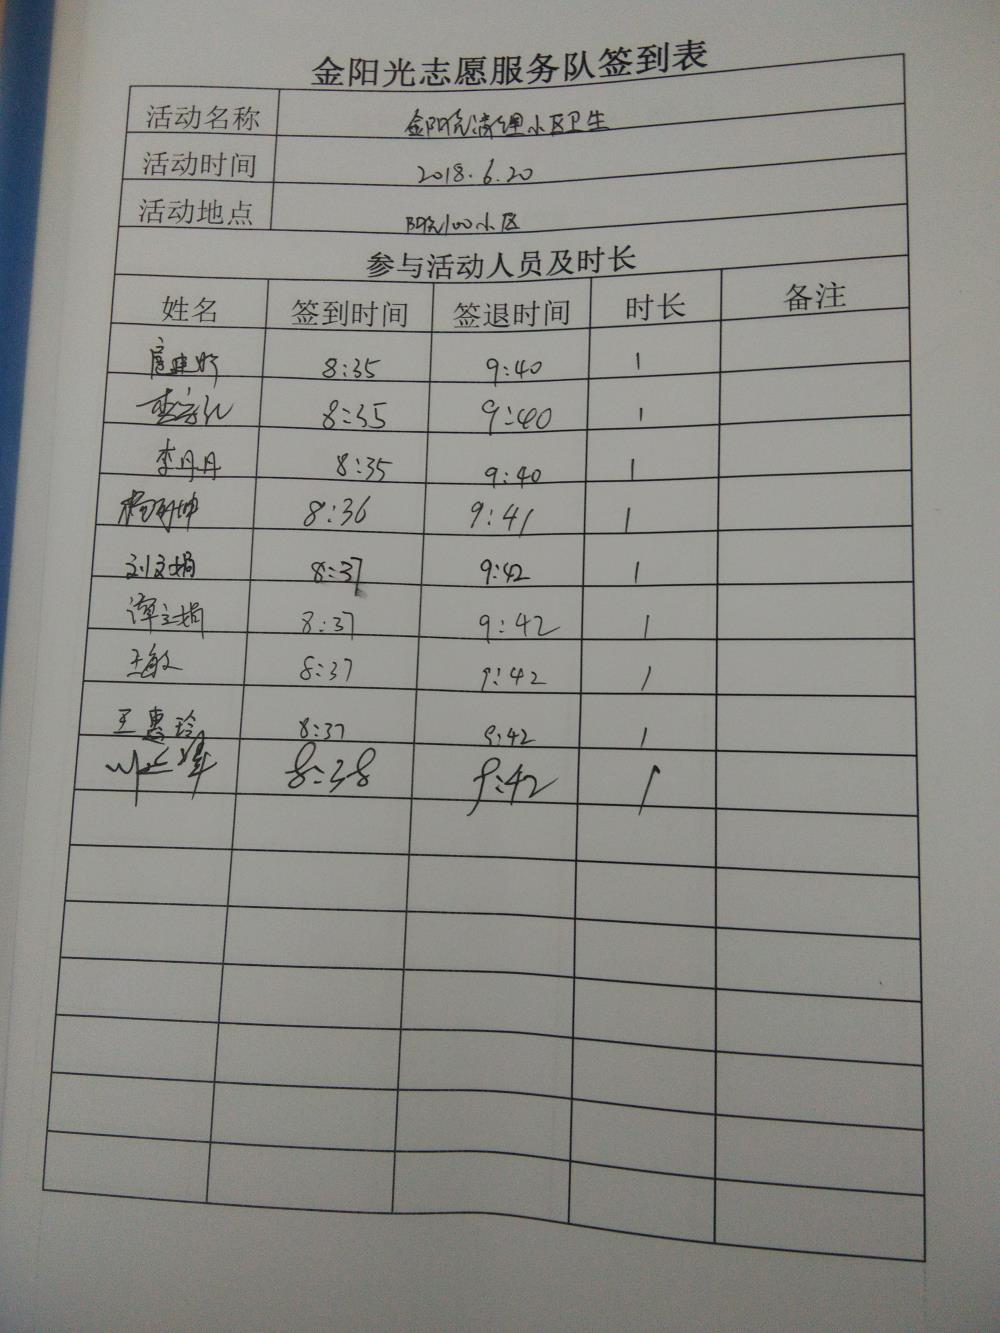 金阳光志愿服务队签到表
活动名称 金阳光清理小区卫生
活动时间 2018.6.20
活动地点 阳光100小区
参与活动人员及时长
姓名 签到时间 签退时间 时长 备注
8:35 9:40 1
8:35 9:40 1
李丹丹 8:35 9:40 1
8:36 9:41 1
刘文娟 8:37 9:42 1
谭立娟 8:37 9:42 1
王敏 8:37 9:42 1
王惠玲 8:37 9:42 1
8:38 9:42 1